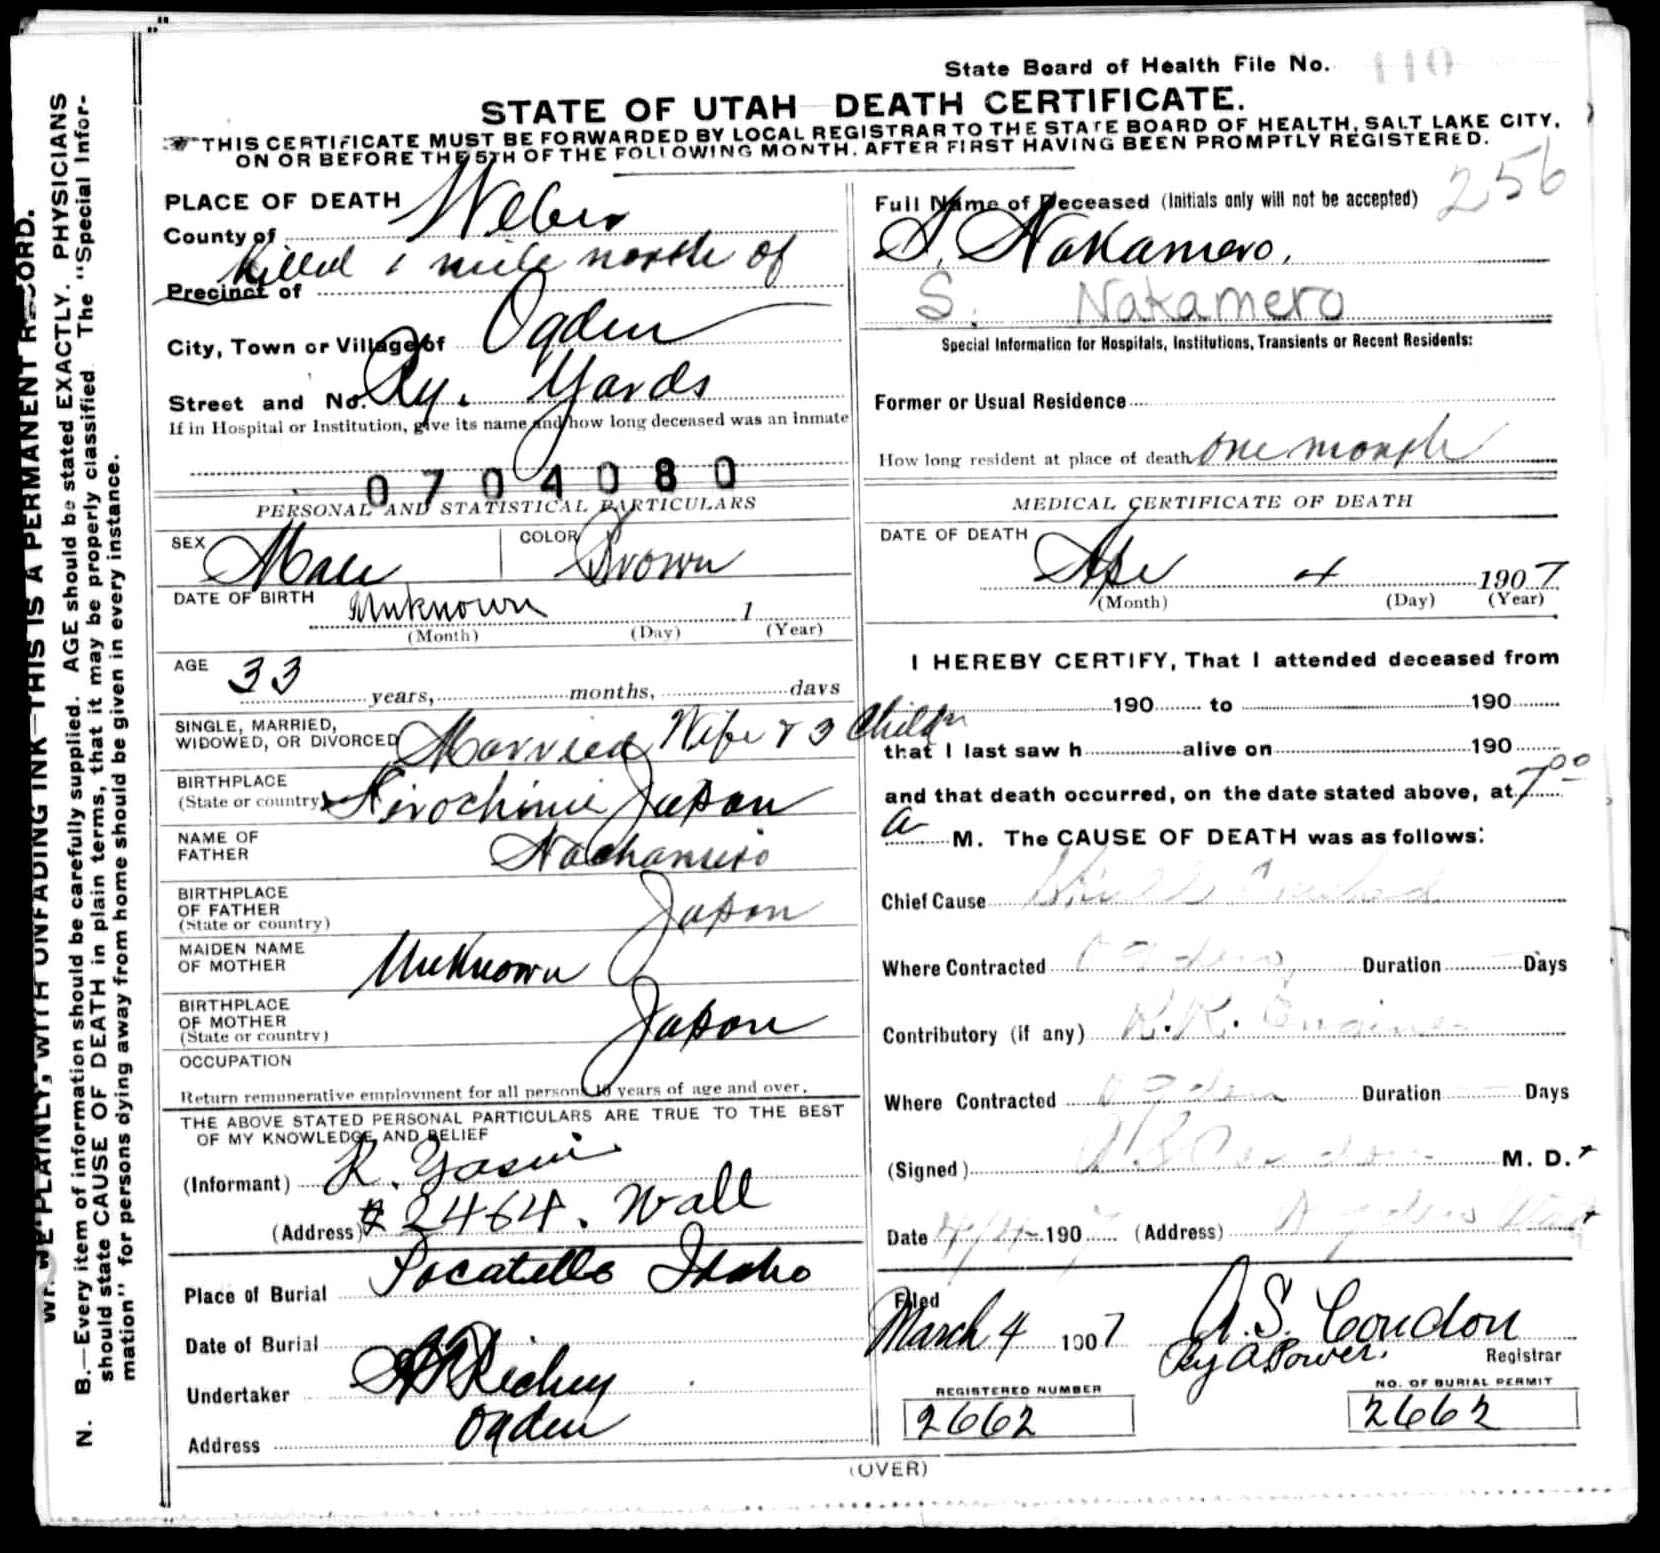 WRITE PLAINLY, WITH UNFADING INK—THIS IS A PERMANENT RECORD.
N. B.—Every item of information should be carefully supplied. AGE should be stated EXACTLY. PHYSICIANS
should state CAUSE OF DEATH in plain terms, that it may be properly classified. The "Special Infor-
mation" for persons dying away from home should be given in every instance.
State Board of Health File No. 110
STATE OF UTAH—DEATH CERTIFICATE.
THIS CERTIFICATE MUST BE FORWARDED BY LOCAL REGISTRAR TO THE STATE BOARD OF HEALTH, SALT LAKE CITY,
ON OR BEFORE THE 5TH OF THE FOLLOWING MONTH, AFTER FIRST HAVING BEEN PROMPTLY REGISTERED.
256
PLACE OF DEATH
County of Weber
Killed 1 mile north of
Precinct of
City, Town or Village of Ogden
Street and No. Ry. Yards
If in Hospital or Institution, give its name and how long deceased was an inmate
0704080
PERSONAL AND STATISTICAL PARTICULARS
SEX Male COLOR Brown
DATE OF BIRTH Unknown 1
(Month) (Day) (Year)
AGE 33 years, months, days
SINGLE, MARRIED,
WIDOWED, OR DIVORCED Married Wife & 3 Childn
BIRTHPLACE
(State or country) Japan
NAME OF
FATHER
BIRTHPLACE
OF FATHER
(State or country) Japan
MAIDEN NAME
OF MOTHER Unknown
BIRTHPLACE
OF MOTHER
(State or country) Japan
OCCUPATION
Return remunerative employment for all persons 10 years of age and over.
THE ABOVE STATED PERSONAL PARTICULARS ARE TRUE TO THE BEST
OF MY KNOWLEDGE AND BELIEF
(Informant) R.
(Address) # 2464. Wall
Place of Burial Pocatello Idaho
Date of Burial
Undertaker Richey
Address Ogden
Full Name of Deceased (Initials only will not be accepted)
S. Nakamero.
S. Nakamero
Special Information for Hospitals, Institutions, Transients or Recent Residents:
Former or Usual Residence
How long resident at place of death one month
MEDICAL CERTIFICATE OF DEATH
DATE OF DEATH
4 1907
(Month) (Day) (Year)
I HEREBY CERTIFY, That I attended deceased from
190 to 190
that I last saw h alive on 190
and that death occurred, on the date stated above, at 7.00
a M. The CAUSE OF DEATH was as follows:
Chief Cause Skull Crushed
Where Contracted Ogden Duration Days
Contributory (if any) R.R. Engine
Where Contracted Ogden Duration Days
(Signed) A S Condon M. D.
Date 4/4 1907 (Address) Ogden Utah
Filed
March 4 1907 A.S. Condon
By A Power. Registrar
REGISTERED NUMBER 2662
NO. OF BURIAL PERMIT 2662
(OVER)